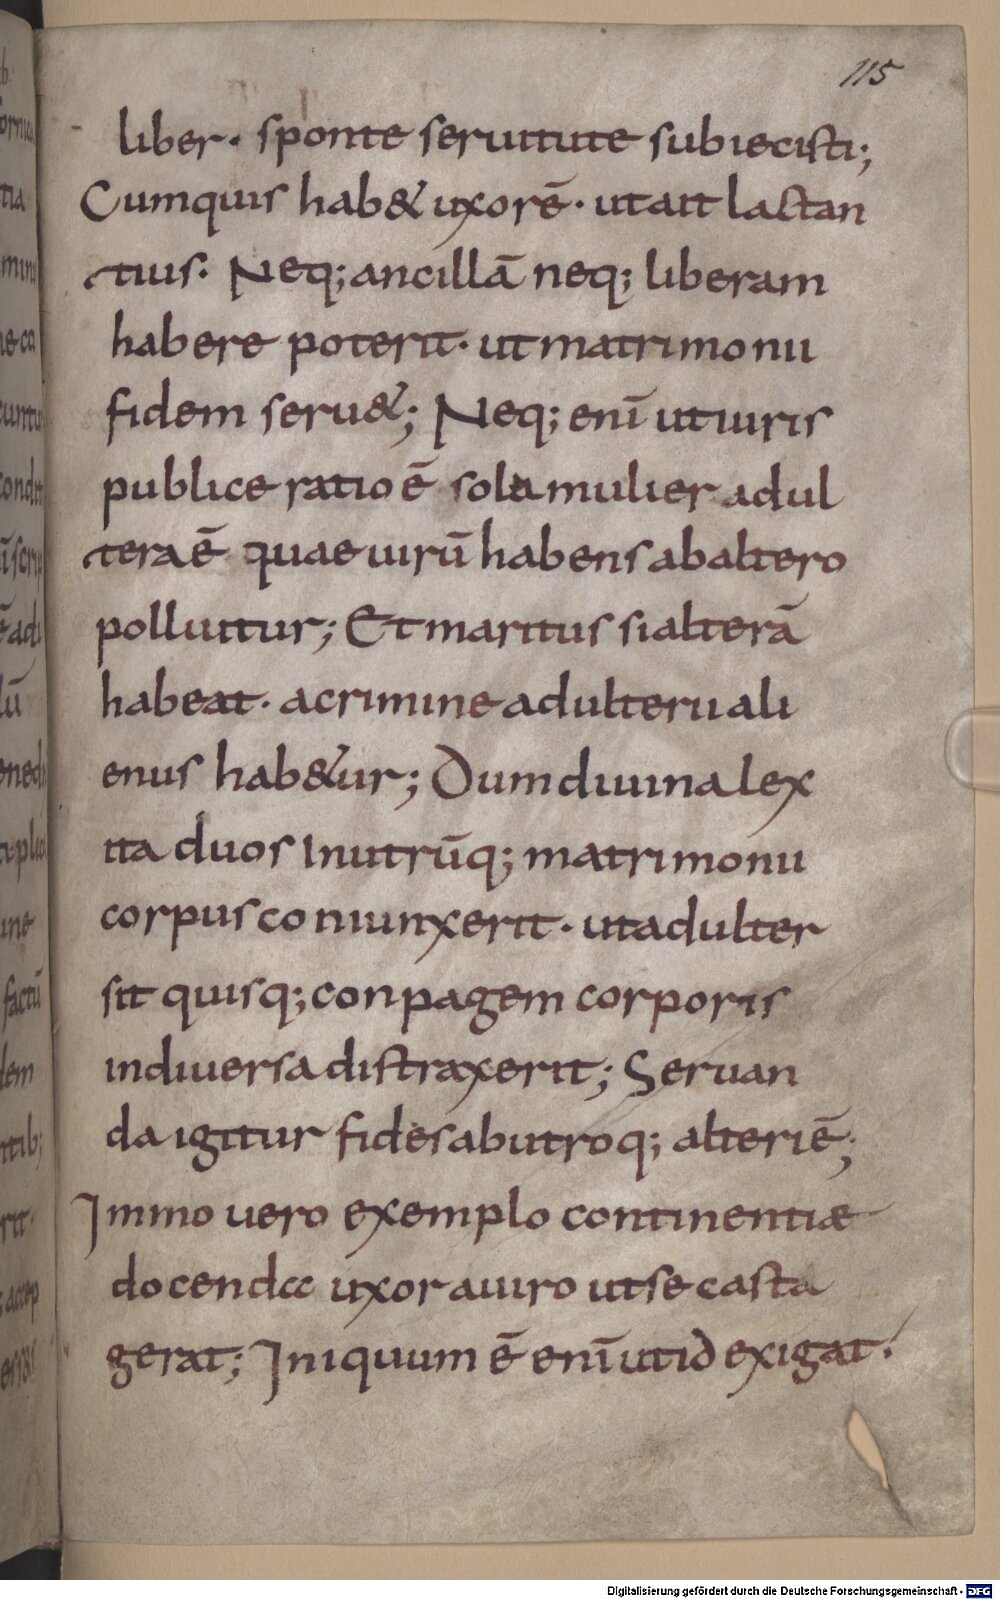 115
liber· sponte seruitute subiecisti;
Cumquis hab& uxorē· utait lactan
tius· Neq; ancillā neq; liberam
habere poterit· ut matrimonii
fidem seru&; Neq; enī ut iuris
publice ratio ē sola mulier adul
tera ē quae uirū habens ab altero
polluitur; Et maritus si alterā
habeat· a crimine adulterii ali
enus hab&ur; Dum diuina lex
ita duos inutrūq; matrimonii
corpus coniunxerit· ut adulter
sit quisq; conpagem corporis
indiuersa distraxerit; Seruan
da igitur fides ab utroq; alteri ē;
Immo uero exemplo continentiæ
docenda uxor a uiro ut se casta
gerat; Iniquum ē enī ut id exigat·
Digitalisierung gefördert durch die Deutsche Forschungsgemeinschaft - DFG